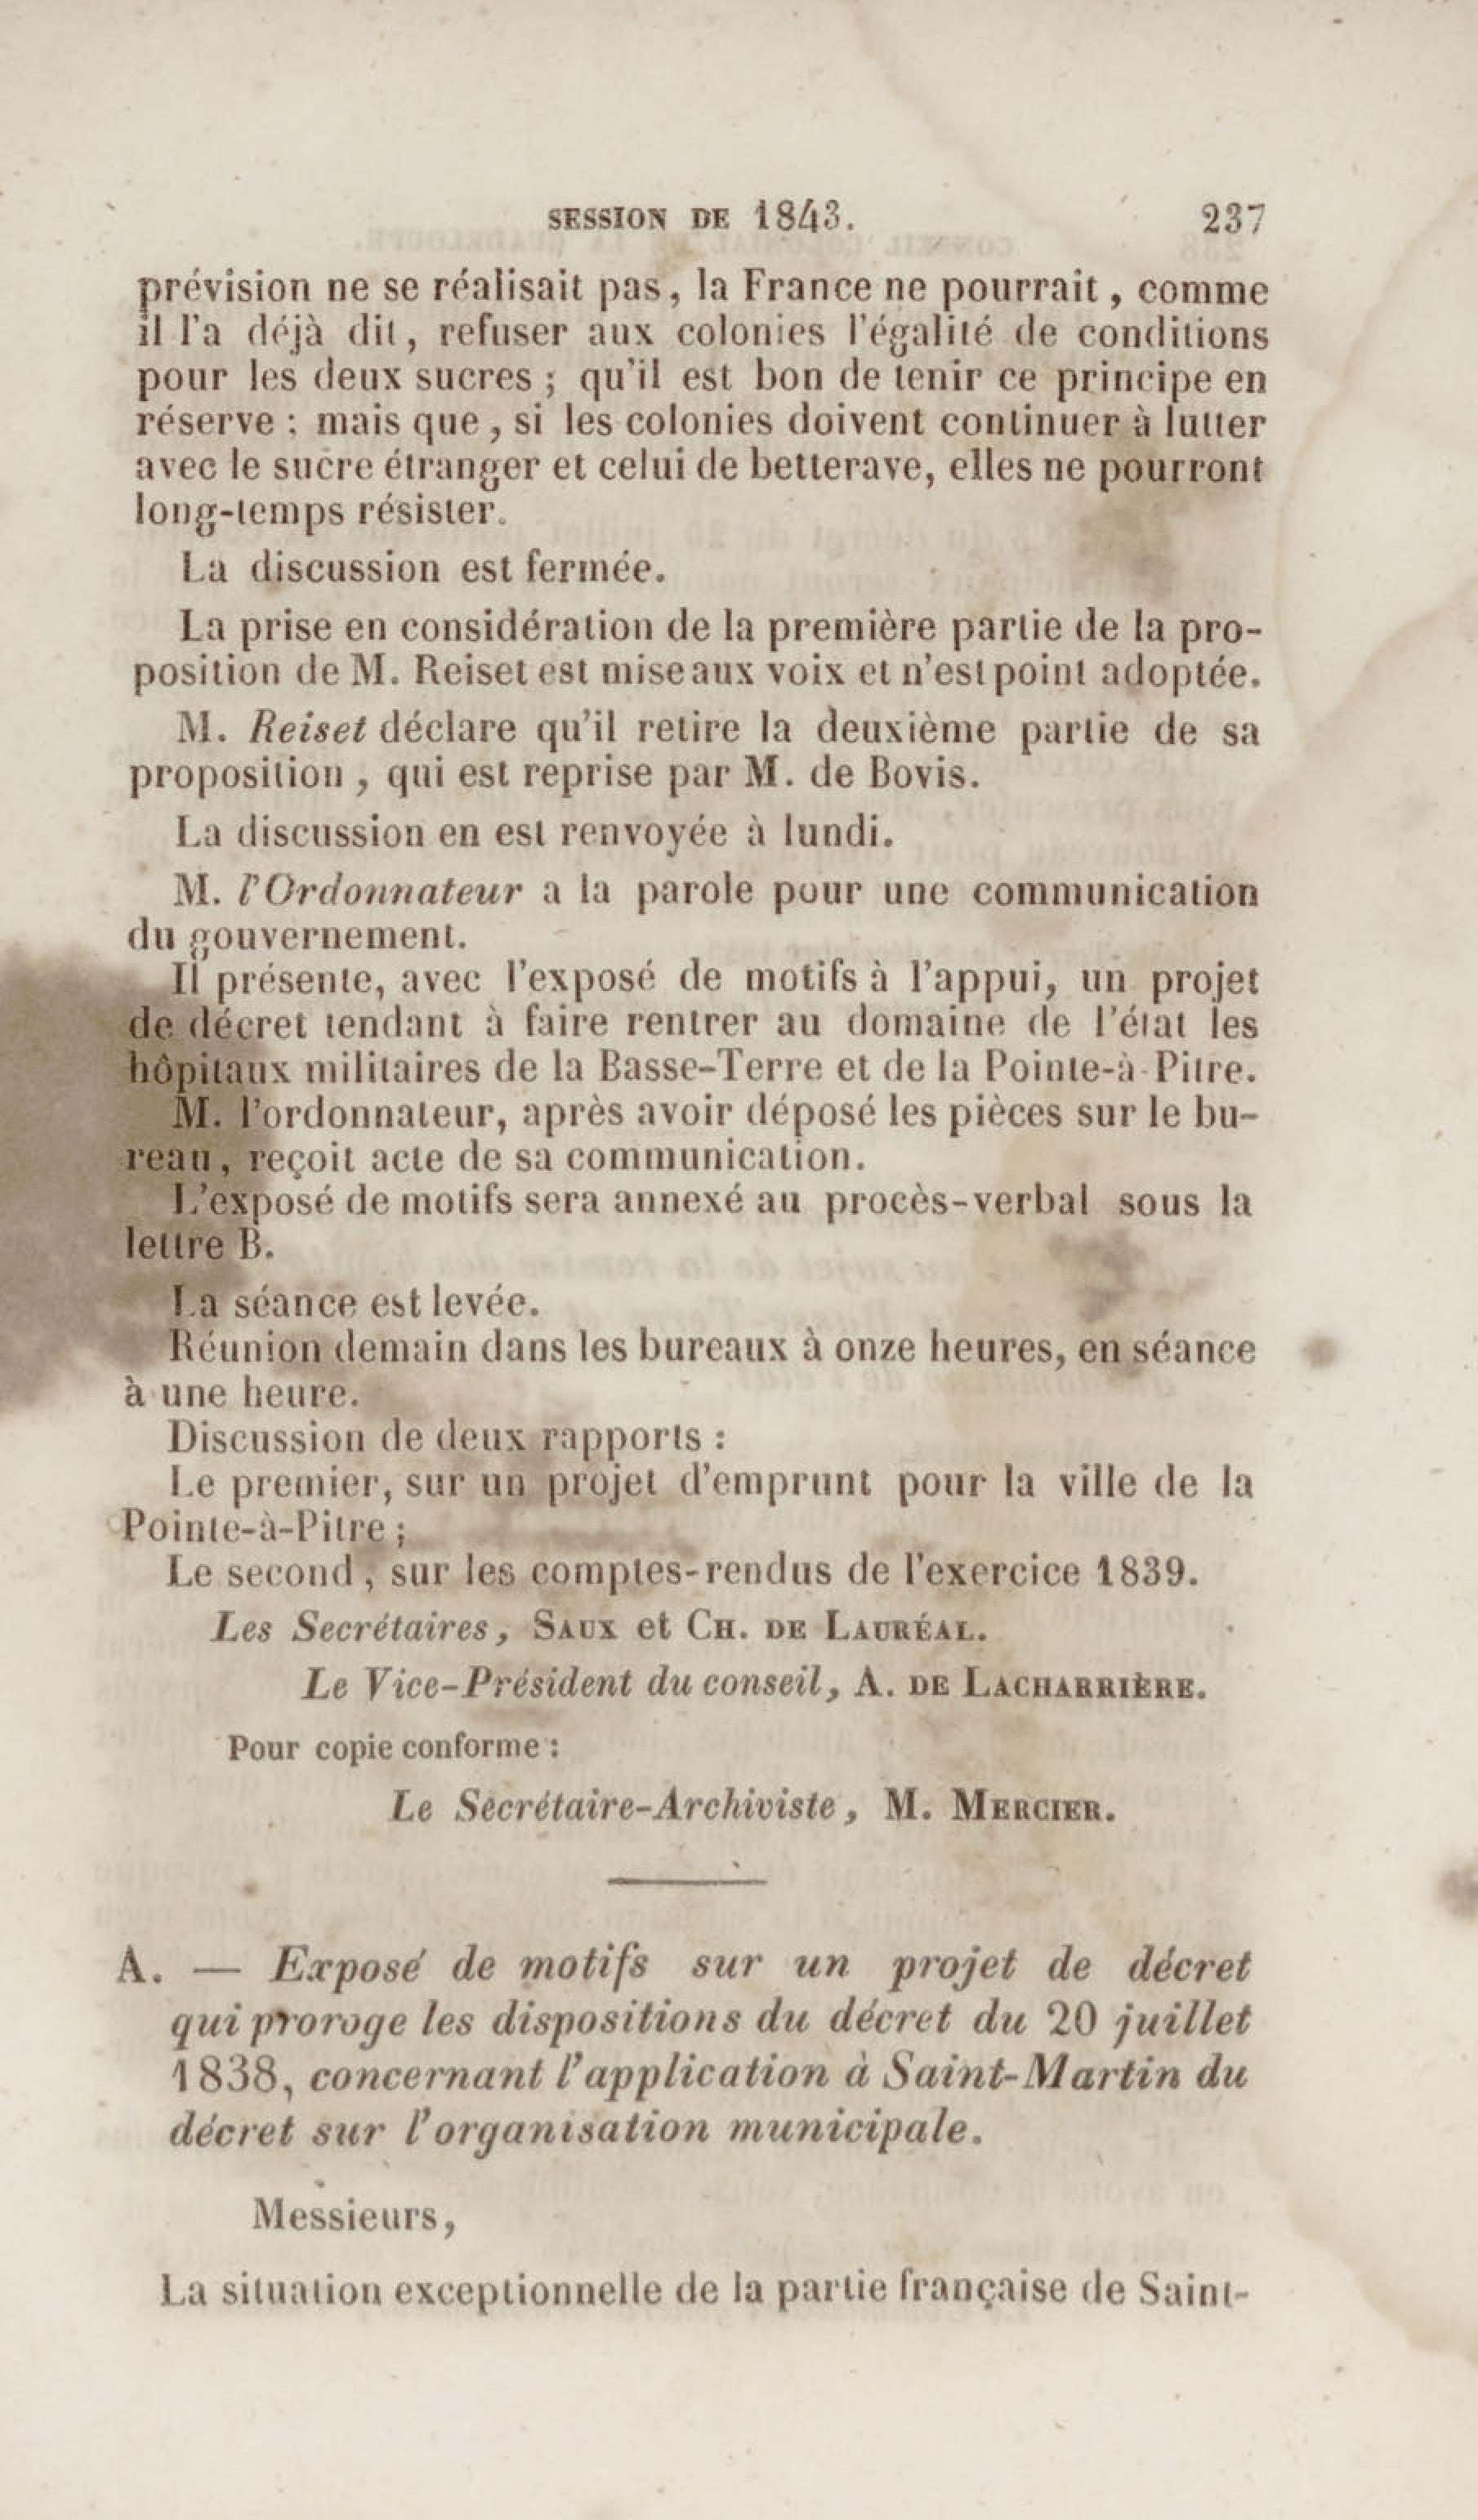 SESSION DE 1843. 237
prévision ne se réalisait pas, la France ne pourrait, comme
il l'a déjà dit, refuser aux colonies l'égalité de conditions
pour les deux sucres ; qu'il est bon de tenir ce principe en
réserve : mais que, si les colonies doivent continuer à lutter
avec le sucre étranger et celui de betterave, elles ne pourront
long-temps résister.
La discussion est fermée.
La prise en considération de la première partie de la pro-
position de M. Reiset est mise aux voix et n'est point adoptée.
M. Reiset déclare qu'il retire la deuxième partie de sa
proposition, qui est reprise par M. de Bovis.
La discussion en est renvoyée à lundi.
M. l'Ordonnateur a la parole pour une communication
du gouvernement.
Il présente, avec l'exposé de motifs à l'appui, un projet
de décret tendant à faire rentrer au domaine de l'état les
hôpitaux militaires de la Basse-Terre et de la Pointe-à-Pitre.
M. l'ordonnateur, après avoir déposé les pièces sur le bu-
reau, reçoit acte de sa communication.
L'exposé de motifs sera annexé au procès-verbal sous la
lettre B.
La séance est levée.
Réunion demain dans les bureaux à onze heures, en séance
à une heure.
Discussion de deux rapports :
Le premier, sur un projet d'emprunt pour la ville de la
Pointe-à-Pitre ;
Le second, sur les comptes-rendus de l'exercice 1839.
Les Secrétaires, SAUX et CH. DE LAURÉAL.
Le Vice-Président du conseil, A. DE LACHARRIÈRE.
Pour copie conforme :
Le Secrétaire-Archiviste, M. MERCIER.
A. — Exposé de motifs sur un projet de décret
qui proroge les dispositions du décret du 20 juillet
1838, concernant l'application à Saint-Martin du
décret sur l'organisation municipale.
Messieurs,
La situation exceptionnelle de la partie française de Saint-